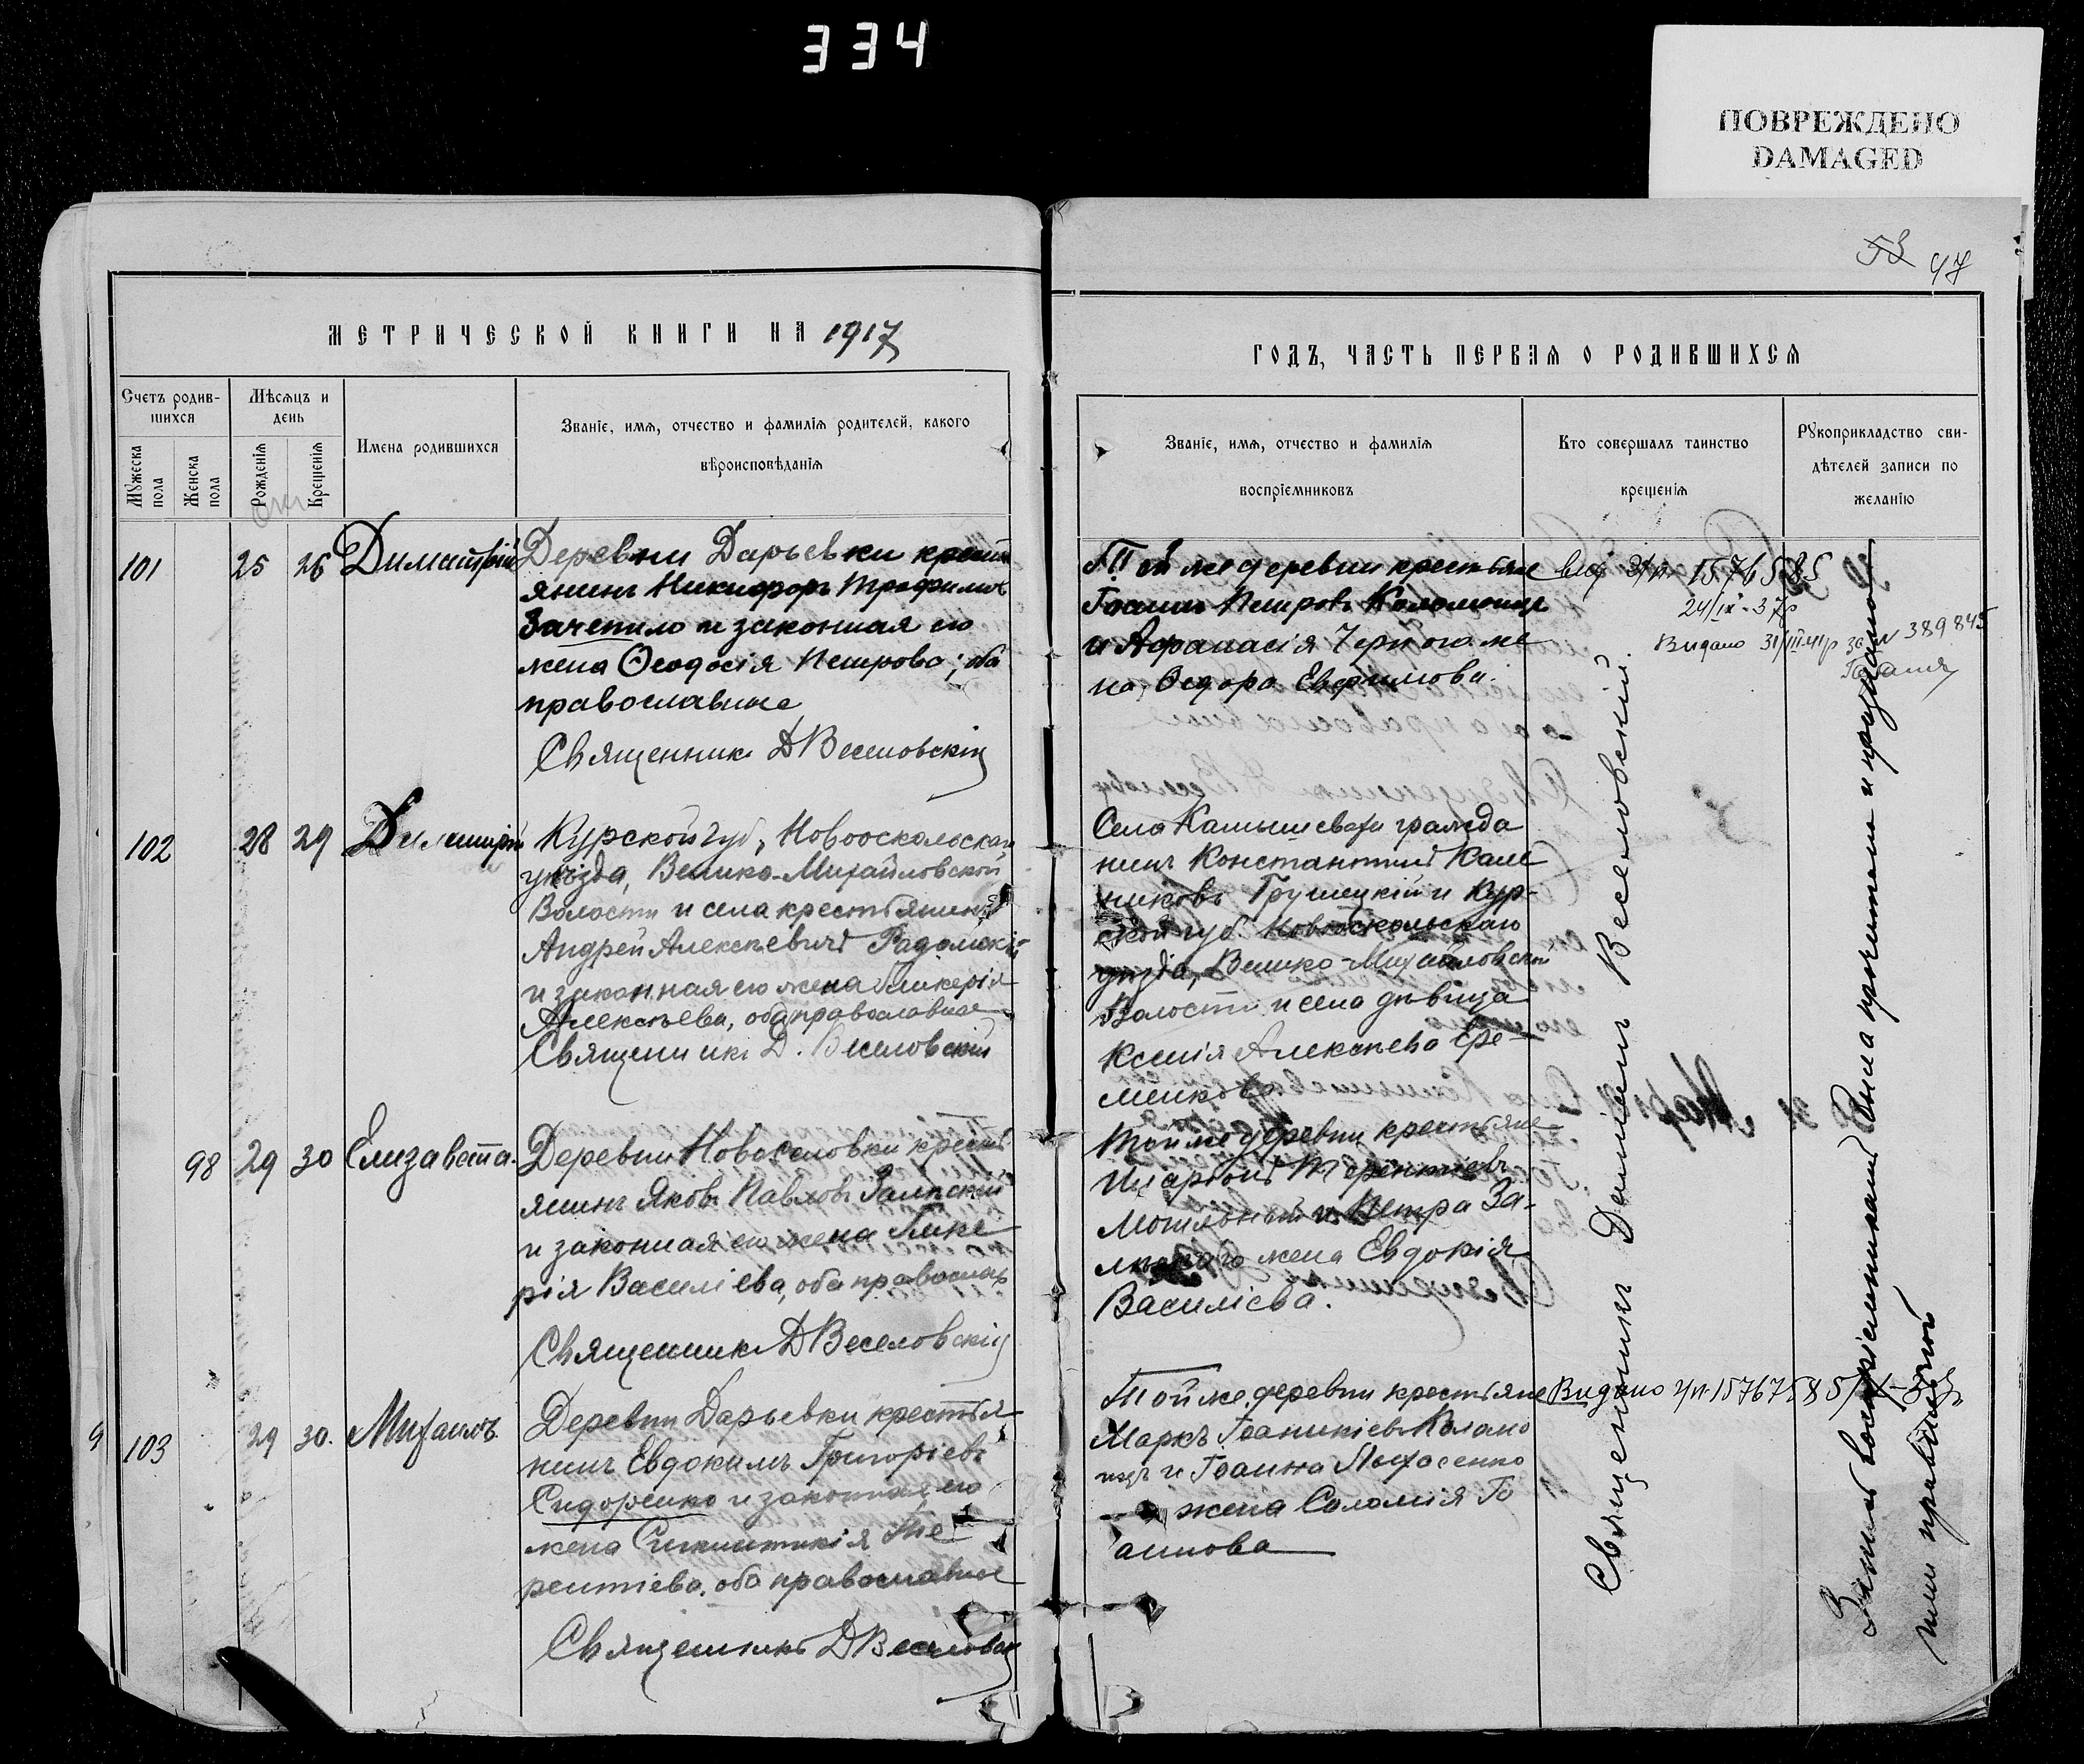 334
ПОВРЕЖДЕНО
DAMAGED
53 47
МЕТРИЧЕСКОЙ КНИГИ НА 1917
ГОДЪ, ЧАСТЬ ПЕРВАЯ О РОДИВШИХСЯ
Счетъ родив-
шихся
Мужеска пола
Женска пола
Мѣсяцъ и
день
Рожденія
Крещенія
Имена родившихся
Званіе, имя, отчество и фамилія родителей, какого
вѣроисповѣданія
Званіе, имя, отчество и фамилія
воспріемниковъ
Кто совершалъ таинство
крещенія
Рукоприкладство сви-
дѣтелей записи по
желанію
101 25 26 Димитрій
Деревни Дарьевки кресть
янинъ Никифоръ Трофимовъ
Зачепило и законная его
жена Ѳеодосія Петрова; оба
православные
Священникъ Д Веселовскій
Той же деревни крестьяне
Іоаннъ Петровъ Коломіецъ
и Афанасія Черного же
на Ѳедора Евфимова.
1576585
24/IX-37р
Видано 31/III 41р за № 389845
102 28 29 Димитрій
Курской губ, Новооскольскаго
уѣзда, Велико-Михайловской
Волости и села крестьянинъ
Андрей Алексѣевичъ
и законная его жена Гликерія
Алексѣева, оба православные
Священникъ Д. Веселовскій
Села Камышевахи гражда
нинъ Константинъ
Грушецкій и Кур-
ской губ Новооскольскаго
уѣзда, Велико-Михайловской
Волости и села дѣвица
Ксенія Алексѣева Ере-
менкова.
98 29 30 Елизавета.
Деревни Новоселовки кресть
янинъ Яковъ Павловъ
и законная его жена Глике
рія Василіева, оба православ
Священникъ Д Веселовскій
Той же деревни крестьяне
Иларіонъ Терентіевъ
Могильный и Петра За-
жена Евдокія
Василіева.
103 29 30. Михаилъ
Деревни Дарьевки крестья
нинъ Евдокимъ Григорьевъ
Сидоренко и законная его
жена Синклитикія Те
рентіева, оба православные
Священникъ Д Веселовск
Той же деревни крестьяне
Маркъ Іоанникіевъ Колано
и Іоанна
жена Соломія Іо
аннова
Видано
Священникъ Даніилъ Веселовскій.